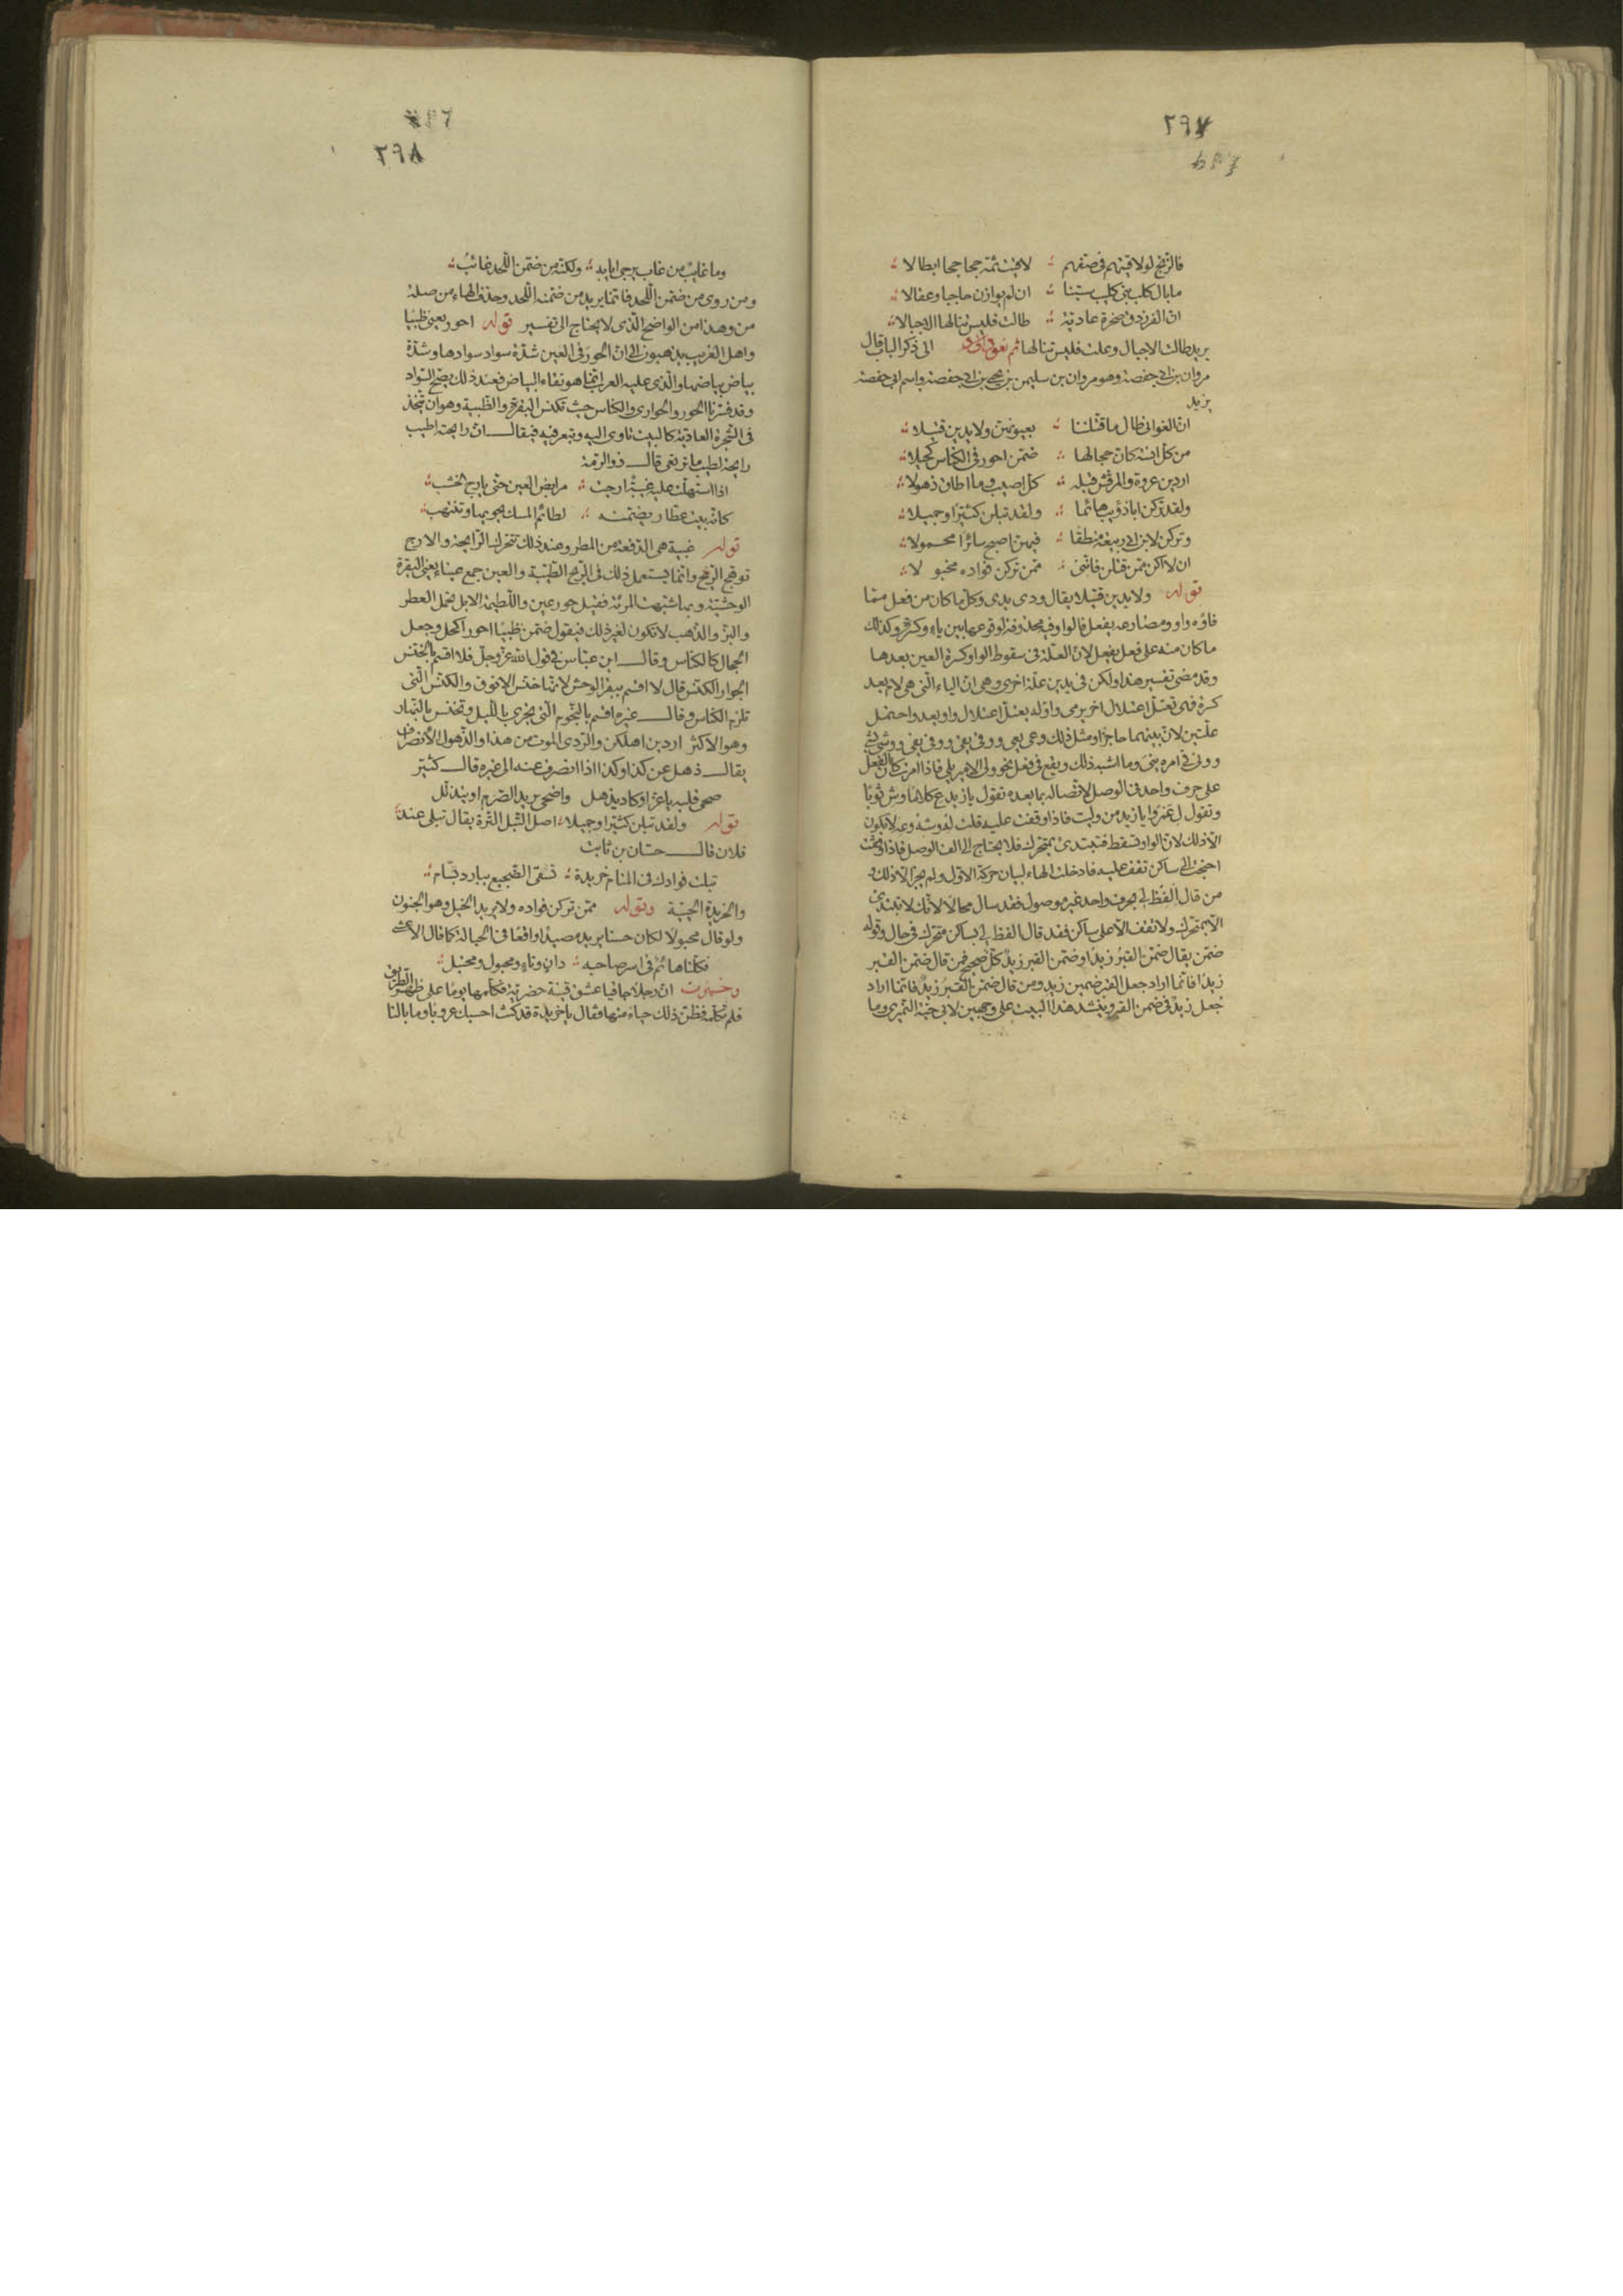 ٢٩٧
فالزنج لو لاقيتهم فى صفهم ؞ لاقيت ثمة جحاجحا ابطالا ؞
ما بال كلب بنى كليب سبنا ؞ ان لم يوازن حاجبا وعقالا ؞
ان الفرزدق صخرة عادية ؞ طالت فليس تنالها الاجبالا ؞
يريد طالت الاجبال وعلت فليس تنالها ثم نعود الى ذكر الباب قال
مروان بن ابى حفصة وهو مروان بن سليمن بن يحيى بن ابى حفصة واسم ابى حفصة
يزيد
ان الغوانى طال ما قتلننا ؞ بعيونهن ولا يدين قتيلا ؞
من كل انسة كان حجالها ؞ ضمن احور فى الكناس كحيلا ؞
اردين عروة والمرقش قبله ؞ كل اصيب وما اطان ذهولا ؞
ولقد تركن ابا ذؤيب هائما ؞ ولقد تبلن كثيرا وجميلا ؞
وتركن لابن ابى ربيعة منطقا ؞ فيهن اصبح سائرا محمولا ؞
ان لا اكن ممن قتلن فاننى ؞ ممن تركن فواده مخبولا ؞
قوله ولا يدين قتيلا يقال ودى يدى وكل ما كان من فعل مما
فاؤه واو ومضارعه يفعل فالواو فيه محذوفة لوقوعها بين ياء وكسرة وكذلك
ما كان منه على فعل يفعل لان العلة فى سقوط الواو كسرة العين بعدها
وقد مضى تفسير هذا ولكن فى يدين علة اخرى وهى ان الياء التى هى لام بعد
كسرة فهى تعتل اعتلال اخر يرمى واوله يعتل اعتلال واو يعد واحتمل
علتين لان بينهما حاجزا ومثل ذلك وعى يعى ووقى يقى ووفى يفى ووشى يشى
وونى فى امره ينى وما اشبه ذلك ويقع فى فعل نحو ولى الامير يلى فاذا امرت كان الفعل
على حرف واحد فى الوصل لاتصاله بما بعده تقول يا زيد ع كلاما وش ثوبا
وتقول ل عمرا يا زيد من وليت فاذا وقفت عليه قلت له وشه وعه لا يكون
الا ذلك لان الواو تسقط فتبتدئ بمتحرك فلا يحتاج الى الف الوصل فاذا وقفت
احتجت الى ساكن تقف عليه فادخلت الهاء لبيان حركة الاول ولم يجز الا ذلك
من قال الفظ لى بحرف واحد غير موصول فقد سال محالا لانك لا تبتدئ
الا بمتحرك ولا تقف الا على ساكن فقد قال الفظ لى بساكن متحرك فى حال وقوله
ضمن يقال ضمن القبر زيدا وضمن القبر زيد كل صحيح فمن قال ضمن القبر
زيدا فانما اراد جعل القبر ضمين زيد ومن قال ضمن القبر زيد فانما اراد
جعل زيد فى ضمن القبر وينشد هذا البيت على وجهين لابى حية النميرى وما
٢٩٨
وما غايب من غاب يرجى ايابه ؞ ولكنه من ضمن اللحد غائب ؞
ومن روى من ضمن اللحد فانما يريد من ضمنه اللحد وحذف الهاء من صلة
من وهذا من الواضح الذى لا يحتاج الى تفسير قوله احور يعنى ظبيا
واهل الغريب يذهبون الى ان الحور فى العين شدة سواد سوادها وشدة
بياض بياضها والذى عليه العرب انما هو نقاء البياض فعند ذلك يضح السواد
وقد فسرنا الحور والحوارى والكناس حيث تكنس البقرة والظبية وهو ان تتخذ
فى الشجرة العادية كالبيت تاوى اليه وتبعر فيه فيقال ان رايحته اطيب
رايحة لطيب ما ترتعى قال ذو الرمة
اذا استهلت عليه غبية ارجت ؞ مرابض العين حتى يارج الخشب ؞
كانه بيت عطار يضمنه ؞ لطائم المسك يحويها وتنتهب ؞
قوله غبية هى الدفعة من المطر وعند ذلك تتحرك الرايحة والارج
توهج الريح وانما يستعمل ذلك فى الريح الطيبة والعين جمع عيناء يعنى البقرة
الوحشية وبها شبهت المرئة فقيل حور عين واللطيمة الابل تحمل العطر
والبز والذهب لا تكون لغير ذلك فيقول ضمن ظبيا احور اكحل وجعل
الحجال كالكناس وقال ابن عباس فى قول الله عز وجل فلا اقسم بالخنس
الجوار الكنس قال لا اقسم ببقر الوحش لانها خنس الانوف والكنس التى
تلزم الكناس وقال غيره اقسم بالنجوم التى تجرى بالليل وتخنس بالنهار
وهو الاكثر اردين اهلكن والردى الموت من هذا والذهول الانصراف
يقال ذهل عن كذا وكذا اذا انصرف عنه الى غيره قال كثير
صحى قلبه يا عز او كاد يذهل واضحى يريد الصرم او يتدلل
قوله ولقد تبلن كثيرا وجميلا ؞ اصل التبل الترة يقال تبلى عند
فلان قال حسان بن ثابت
تبلت فوادك فى المنام خريدة ؞ تسقى الضجيع ببارد بسام ؞
والخريدة الحيية وقوله ممن تركن فواده ولا يريد الخبل وهو الجنون
ولو قال محبولا لكان حسنا يريد مصيدا واقعا فى الحبالة كما قال الاعشى
فكلنا هائم فى اسر صاحبه ؞ دان وناء ومحبول ومختبل ؞
ان رجلا جافيا عشق قينة حضرية فكلمها يوما على ظهر الطريق
فلم تكلمه فظن ذلك حياء منها فقال يا خريدة قد كنت احسبك عروبا وما بالنا